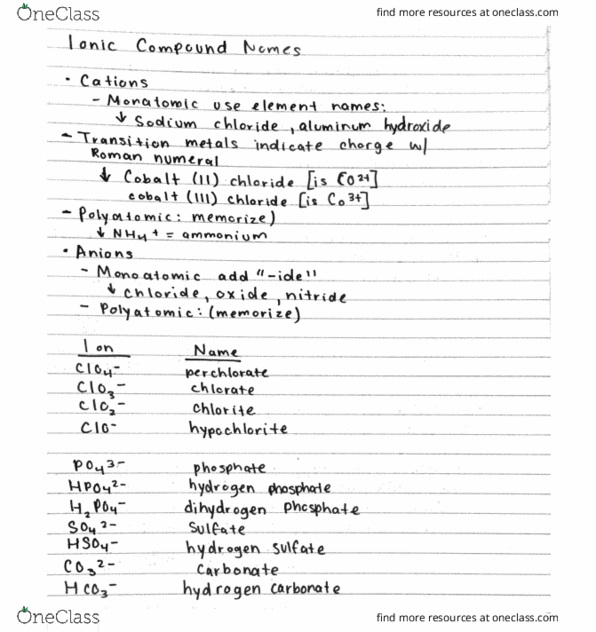 OneClass
find more resources at oneclass.com
Ionic Compound Names
• Cations
- Monatomic use element names:
↳ Sodium chloride, aluminum hydroxide
- Transition metals indicate charge w/
Roman numeral
↳ Cobalt (II) chloride [is Co²⁺]
cobalt (III) chloride [is Co³⁺]
- Polyatomic: memorize)
↳ NH₄⁺ = ammonium
• Anions
- Monoatomic add "-ide"
↳ chloride, oxide, nitride
- Polyatomic: (memorize)
Ion Name
ClO₄⁻ perchlorate
ClO₃⁻ chlorate
ClO₂⁻ chlorite
ClO⁻ hypochlorite
PO₄³⁻ phosphate
HPO₄²⁻ hydrogen phosphate
H₂PO₄⁻ dihydrogen phosphate
SO₄²⁻ sulfate
HSO₄⁻ hydrogen sulfate
CO₃²⁻ carbonate
HCO₃⁻ hydrogen carbonate
OneClass
find more resources at oneclass.com